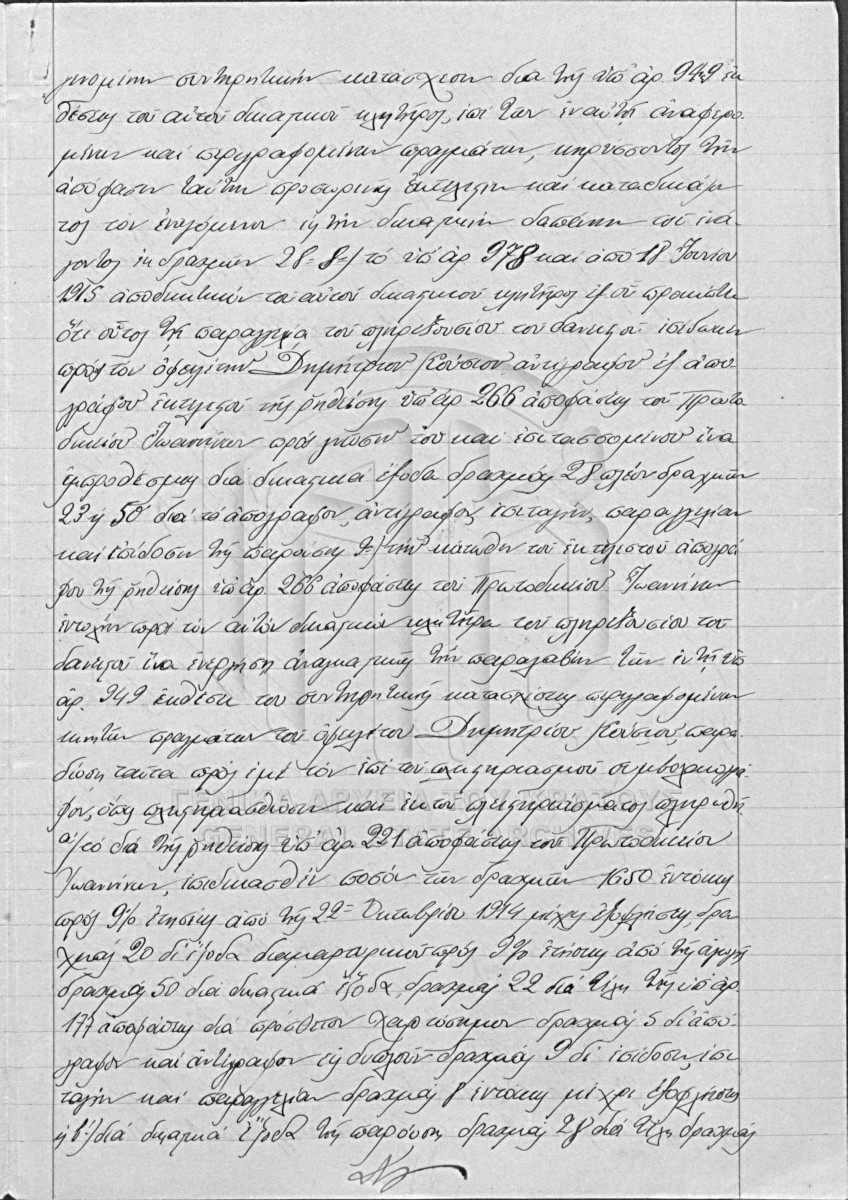 γενομένην συντηρητικήν κατάσχεσιν διά τῆς ὑπ' ἀρ. 949 ἐκ
θέσεως τοῦ αὐτοῦ δικαστικοῦ κλητῆρος, ἐπί τῶν ἐν αὐτῇ ἀναφερο-
μένων καί περιγραφομένων πραγμάτων, κηρύσσοντος τήν
ἀπόφασιν ταύτην προσωρινῶς ἐκτελεστήν καί καταδικάζον
τος τόν ἐναγόμενον εἰς τήν δικαστικήν δαπάνην τοῦ ἐνά
γοντος ἐκ δραχμῶν 28 = 8=) τό ὑπ' ἀρ. 978 καί ἀπό 18 Ἰουνίου
1915 ἀποδεικτικόν τοῦ αὐτοῦ δικαστικοῦ κλητῆρος ἐξ οὗ προκύπτει
ὅτι οὗτος τῇ παραγγελίᾳ τοῦ πληρεξουσίου τοῦ δανειστοῦ ἐπέδωκεν
πρός τόν ὀφειλέτην Δημήτριον Κούσιον ἀντίγραφον ἐξ ἀπο-
γράφου ἐκτελεστοῦ τῆς ῥηθείσης ὑπ' ἀρ. 266 ἀποφάσεως τοῦ Πρωτο
δικείου Ἰωαννίνων πρός γνῶσίν του καί ἐπιτασσομένου ἵνα
ἐμπροθέσμως διά δικαστικά ἔξοδα δραχμάς 28 πλέον δραχμῶν
23 ή 50 διά τό ἀπόγραφον, ἀντίγραφον, ἐπιταγήν, παραγγελίαν
καί ἐπίδοσιν τῆς παρούσης 9=) τήν κάτωθεν τοῦ ἐκτελεστοῦ ἀπογρά
φου τῆς ῥηθείσης ὑπ' ἀρ. 266 ἀποφάσεως τοῦ Πρωτοδικείου Ἰωαννίνων
ἐντολήν πρός τόν αὐτόν δικαστικόν κλητῆρα τοῦ πληρεξουσίου τοῦ
δανειστοῦ ἵνα ἐνεργήσῃ ἀναγκαστικῶς τήν παραλαβήν τῶν ἐν τῇ ὑπ'
ἀρ. 949 ἐκθέσει του συντηρητικῆς κατασχέσεως περιγραφομένων
κινητῶν πραγμάτων τοῦ ὀφειλέτου Δημητρίου Κούσιου, παρα
δώσῃ ταῦτα πρός ἐμέ τόν ἐπί τοῦ πλειστηριασμοῦ συμβολαιογρά
φον, ὅπως πλειστηριασθῶσιν καί ἐκ τοῦ πλειστηριάσματος πληρωθῇ
α') τό διά τῆς ῥηθείσης ὑπ' ἀρ. 221 ἀποφάσεως τοῦ Πρωτοδικείου
Ἰωαννίνων, ἐπιδικασθέν ποσόν τῶν δραχμῶν 1650 ἐντόκως
πρός 9% ἐτησίως ἀπό τῆς 22= Ὀκτωβρίου 1914 μέχρις ἐξοφλήσεως, δρα
χμάς 20 δι' ἔξοδα διαμαρτυρικοῦ πρός 9% ἐτησίως ἀπό τῆς ἀγωγῆς
δραχμάς 50 διά δικαστικά ἔξοδα, δραχμάς 22 διά τέλη τῆς ὑπ' ἀρ.
177 ἀποφάσεως διά πρόσθετον χαρτόσημον δραχμάς 5 δι' ἀπό-
γραφον καί ἀντίγραφον εἰς διπλοῦν δραχμάς 9 δι' ἐπίδοσιν, ἐπι
ταγήν καί παραγγελίαν δραχμάς 8 ἐντόκως μέχρι ἐξοφλήσεως
ή β') διά δικαστικά ἔξοδα τῆς παρούσης δραχμάς 28 διά τέλη δραχμάς
ΓΕΝΙΚΑ ΑΡΧΕΙΑ ΤΟΥ ΚΡΑΤΟΥΣ
GENERAL STATE ARCHIVES